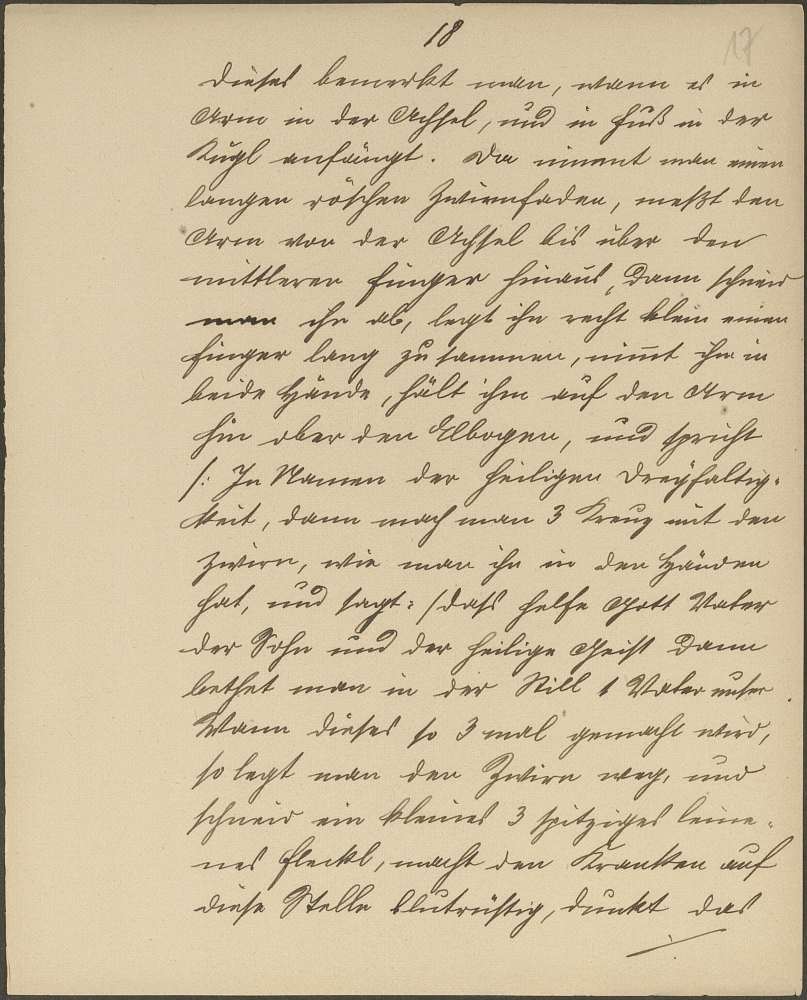 18
17
Dieses bemerkt man, wann es in
Arm in der Achsel, und in Fuß in der
Kugl anfängt. Da nimmt man einen
langen röschen Zwirnfaden, meßt den
Arm von der Achsel bis über den
mittleren Finger hinaus, dann schneid
man ihn ab, legt ihn recht klein einen
Finger lang zusammen, nimt ihn in
beide Hände, hält ihn auf den Arm
hin ober den Elbogen, und spricht
/: In Namen der heiligen Dreyfaltig-
keit, dann mach man 3 Kreuz mit den
Zwirn, wie man ihn in den Händen
hat, und sagt: /dass helfe Gott Vater
der Sohn und der heilige Geist dann
bethet man in der Still 1 Vater unser.
Wann dieses so 3 mal gemacht wird,
so legt man den Zwirn weg, und
schneid ein kleines 3 spitziges leine-
nes Fleckl, macht den Kranken auf
diese Stelle blutrüstig, dunkt das